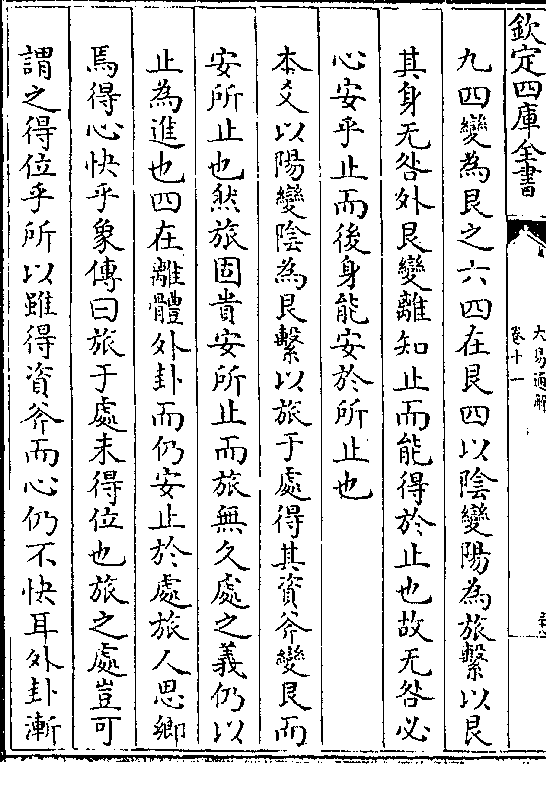 欽定四庫全書
大易通解
卷十一
九四變為艮之六四在艮四以陰變陽為旅繫以艮
其身无咎外艮變離知止而能得於止也故无咎必
心安乎止而後身能安於所止也
本爻以陽變陰為艮繫以旅于處得其資斧變艮而
安所止也然旅固貴安所止而旅無久處之義仍以
止為進也四在離體外卦而仍安止於處旅人思鄉
焉得心快乎象傳曰旅于處未得位也旅之處豈可
謂之得位乎所以雖得資斧而心仍不快耳外卦漸